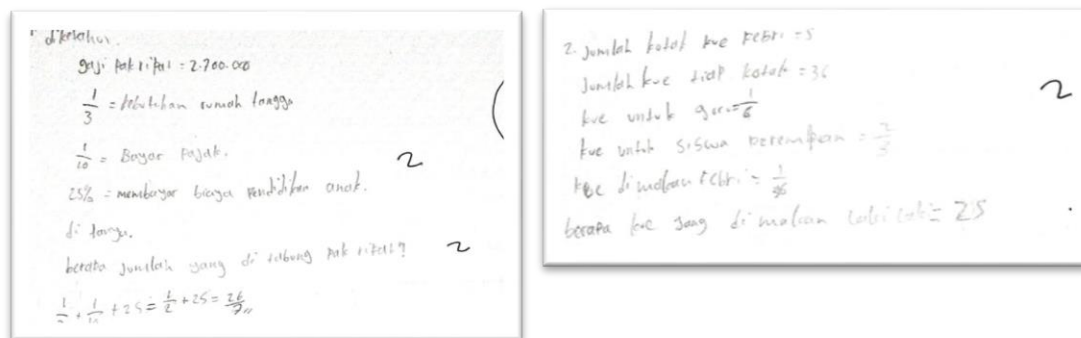 diketahui.
gaji Pak rifai = 2.700.000
1/3 = kebutuhan rumah tangga
1/10 = Bayar Pajak.
2
25% = membayar biaya Pendidikan anak.
di tanya.
berapa jumlah yang di tabung Pak rifai?
2
+ 1/10 + 25 = 1/2 + 25 = 26/
2. Jumlah kotak kue Febri = 5
Jumlah kue tiap kotak = 36
2
kue untuk guru = 1/6
kue untuk siswa perempuan = 2/3
kue di makan Febri =
berapa kue yang di makan laki laki = 25